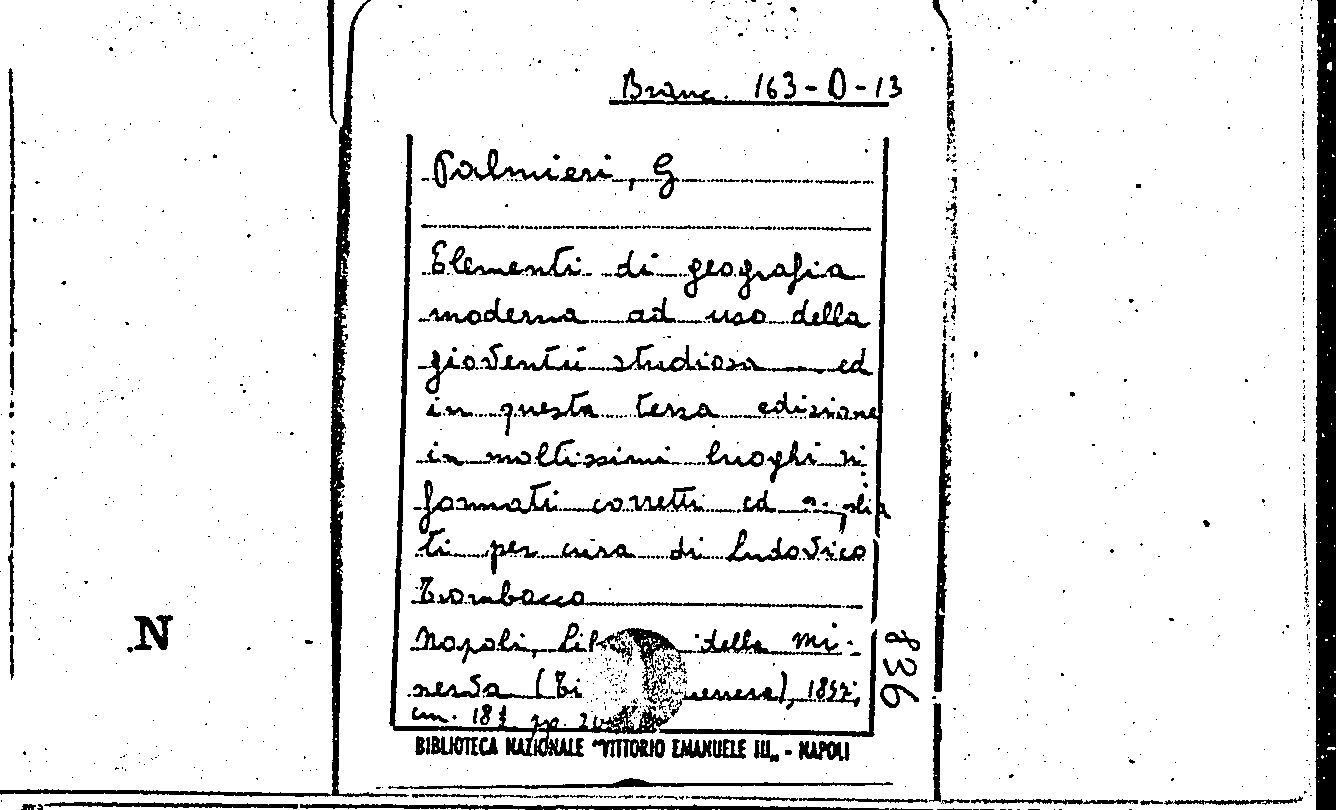 Branc. 163-D-13
Palmieri, G
Elementi di geografia
moderna ad uso della
gioventù studiosa ed
in questa terza edizione
in moltissimi luoghi ri
formati corretti ed
ti per cura di Ludovico
Trombacco
Napoli, della Mi-
nerva
cm. 18
836
N
BIBLIOTECA NAZIONALE "VITTORIO EMANUELE III„ - NAPOLI